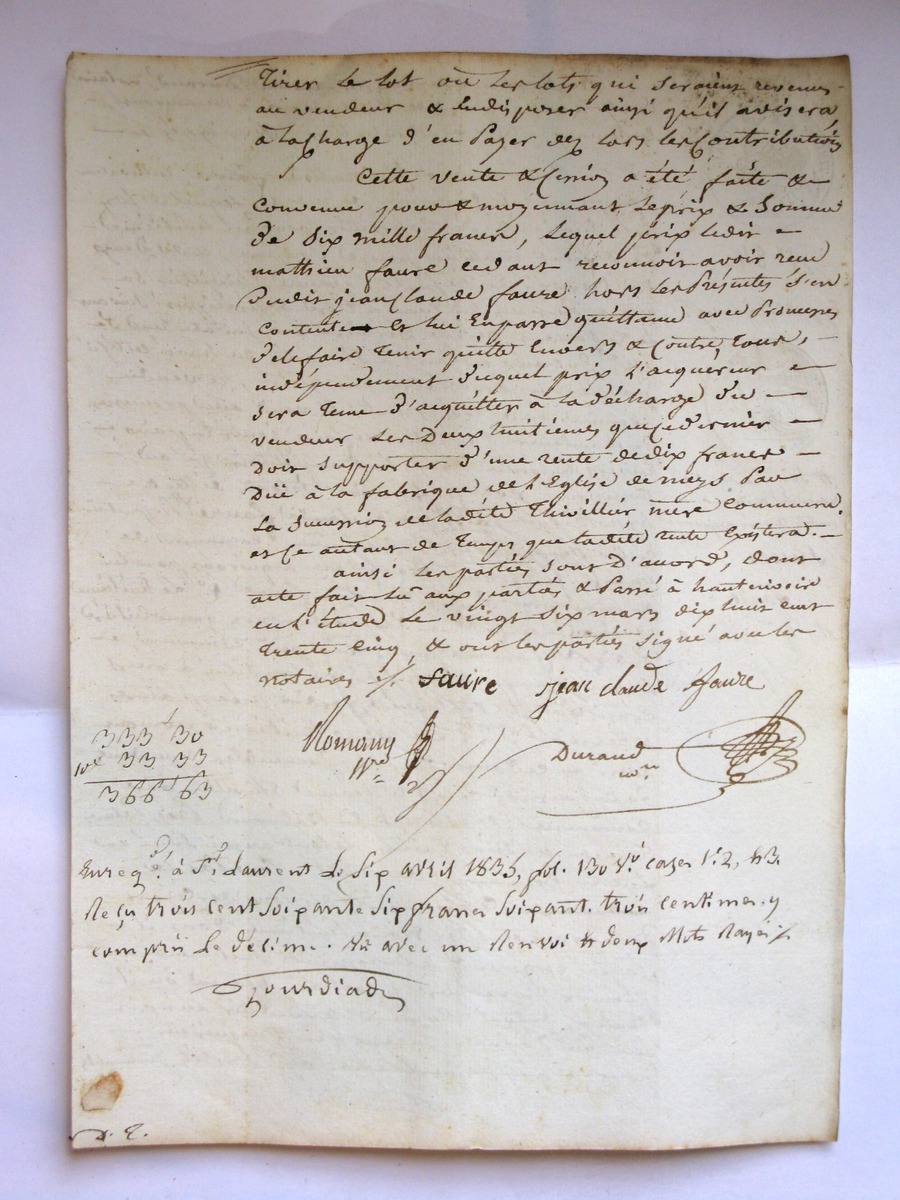 Tirer le lot ou les lots qui seraient revenus
au vendeur & en disposer ainsi qu'il avisera
à la charge d'en payer dez lors les Contributions
Cette vente & Cession a été faite &
Convenue pour & moyennant le prix & Somme
de Six mille francs, lequel prix ledit
mathieu faure cedant reconnoit avoir reçu
dudit jean Claude faure hors les Présentes s'en
contente et lui En passe quittance avec Promesses
de le faire Tenir quitte Envers & Contre Tous,
indépendemment duquel prix l'acquereur
sera Tenu d'acquitter à la décharge du
vendeur les Deux huitiemes que ce dernier
doit supporter d'une rente de dix francs
Düe à la fabrique de l'Eglise de meys Par
la Succession de ladite Thivillier mere Commune.
et ce autant de Temps que ladite rente Existera.
ainsi les parties sont d'accord, dont
acte fait lu aux parties & Passé à hauterivoire
en l'étude le vingt six mars dix huit cent
Trente Cinq, & ont les parties signé avec les
notaires ./. faure jean claude faure
Romany
Durand
nre
333 f 30
10e 33 33
366 f 63
Enregé. à St. Laurent le Six avril 1835, fol. 130 Vo. cases 1re 2, & 3.
Reçu trois cent Soixante Six francs Soixante. trois centimes y
compris le décime. Vu avec un Renvoi & deux Mots Rayés ./.
D. E.